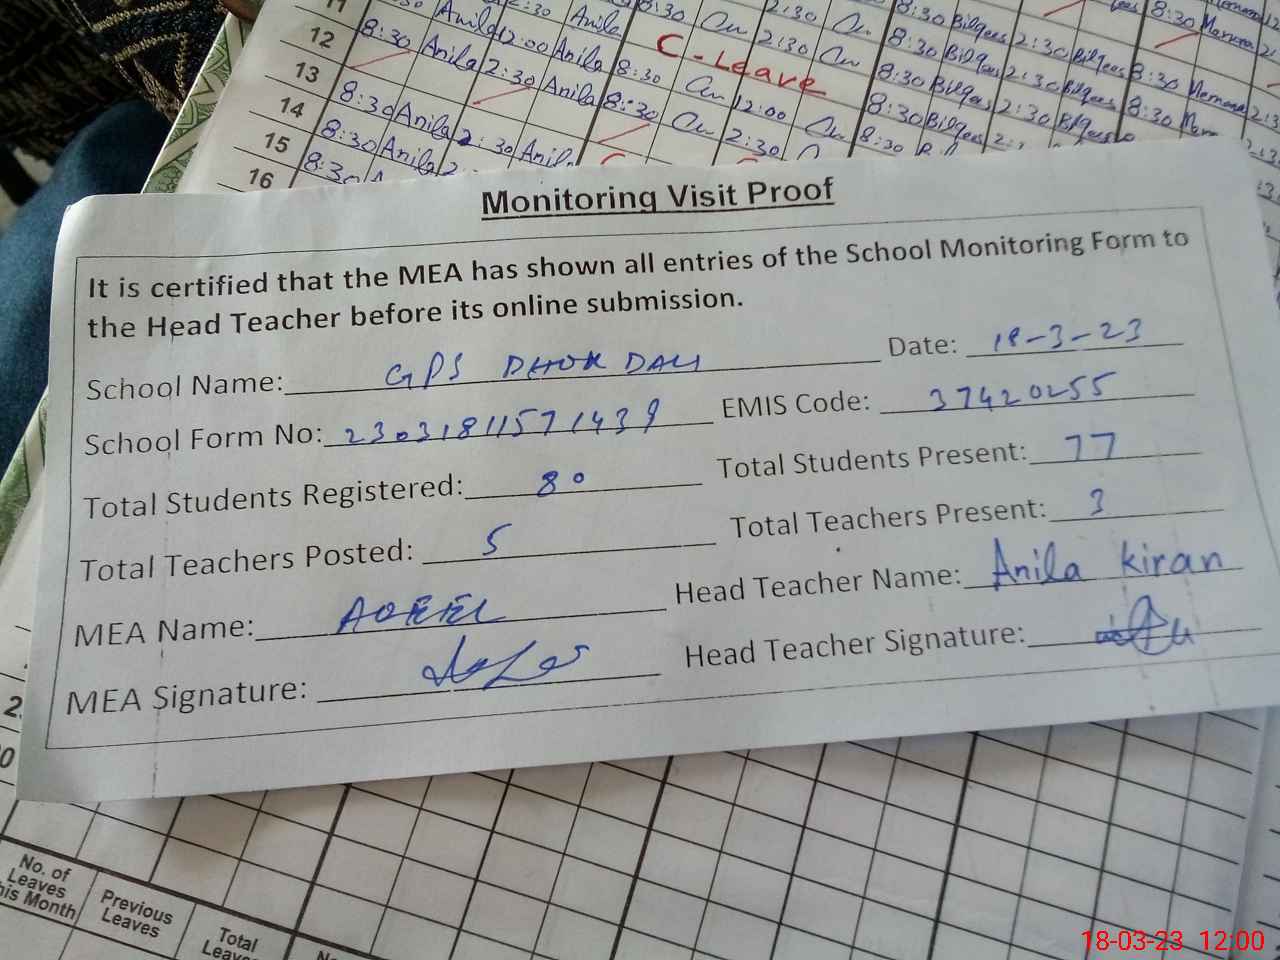 11 Anila 2:30 Anila 8:30 2:30 8:30 Bilqees 8:30
12 8:30 Anila 12:00 Anila C-Leave 2:30 8:30 Bilqees 2:30 Bilqees 8:30
13 Anila 2:30 Anila 8:30 12:00 8:30 Bilqees 2:30 Bilqees 8:30
14 8:30 Anila 2:30 Anila 8:30 2:30 8:30 Bilqees 2:30 Bilqees 8:30
15 8:30 Anila 8:30
16 8:30
Monitoring Visit Proof
It is certified that the MEA has shown all entries of the School Monitoring Form to
the Head Teacher before its online submission.
School Name: GPS DHOK DALI Date: 18-3-23
School Form No: 23031811571439 EMIS Code: 37420255
Total Students Registered: 80 Total Students Present: 77
Total Teachers Posted: 5 Total Teachers Present: 3
MEA Name: Head Teacher Name: Anila Kiran
MEA Signature: Head Teacher Signature:
No. of
Leaves
this Month
Previous
Leaves
Total
18-03-23 12:00